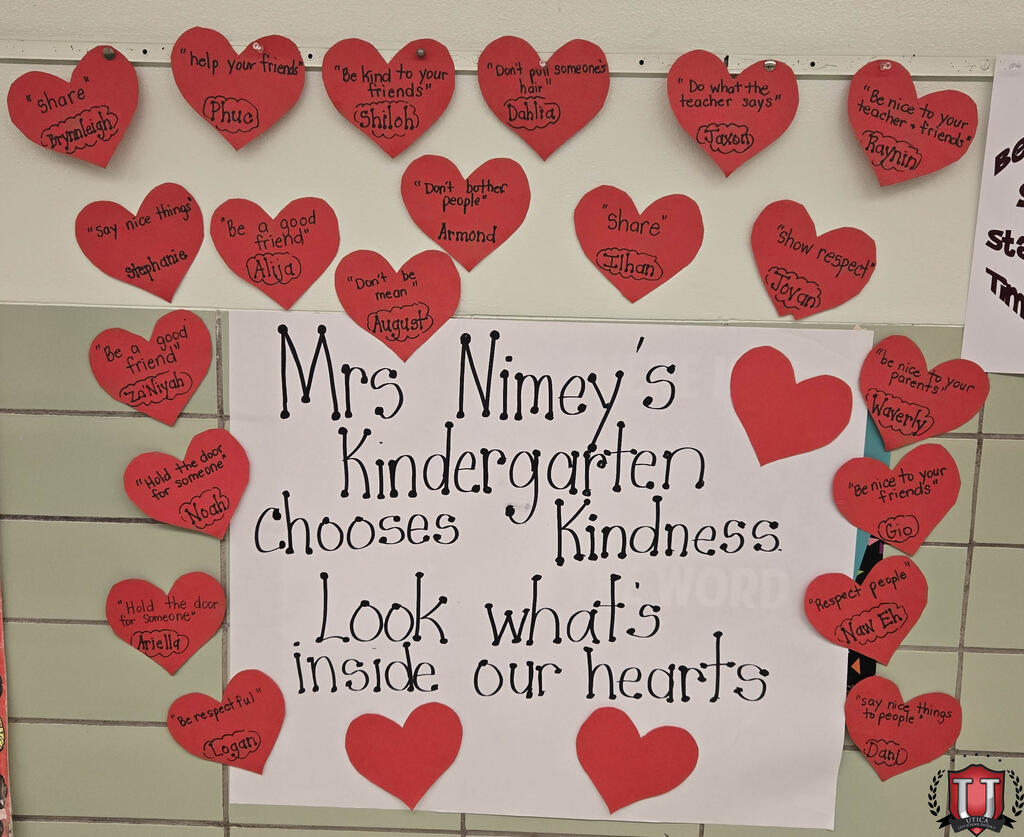 "share"
Brynnleigh
"help your friends"
Phuc
"Be kind to your
friends"
Shiloh
"Don't pull someone's
hair"
Dahlia
"Do what the
teacher says"
Jaxon
"Be nice to your
teacher + friends"
Raynin
"say nice things"
Stephanie
"Be a good
friend"
Alija
"Don't bother
people"
Armond
"share"
Ilhan
"show respect"
Jovan
"Don't be
mean"
August
"Be a good
friend"
Za'Niyah
"be nice to your
parents"
Waverly
"Hold the door
for someone"
Noah
"Be nice to your
friends"
Gio
"Hold the door
for someone"
Ariella
"Respect people"
Naw Eh
"Be respectful"
Logan
"say nice things
to people"
Dani
Mrs Nimey's
Kindergarten
Chooses Kindness.
Look what's
inside our hearts
WORD
UTICA